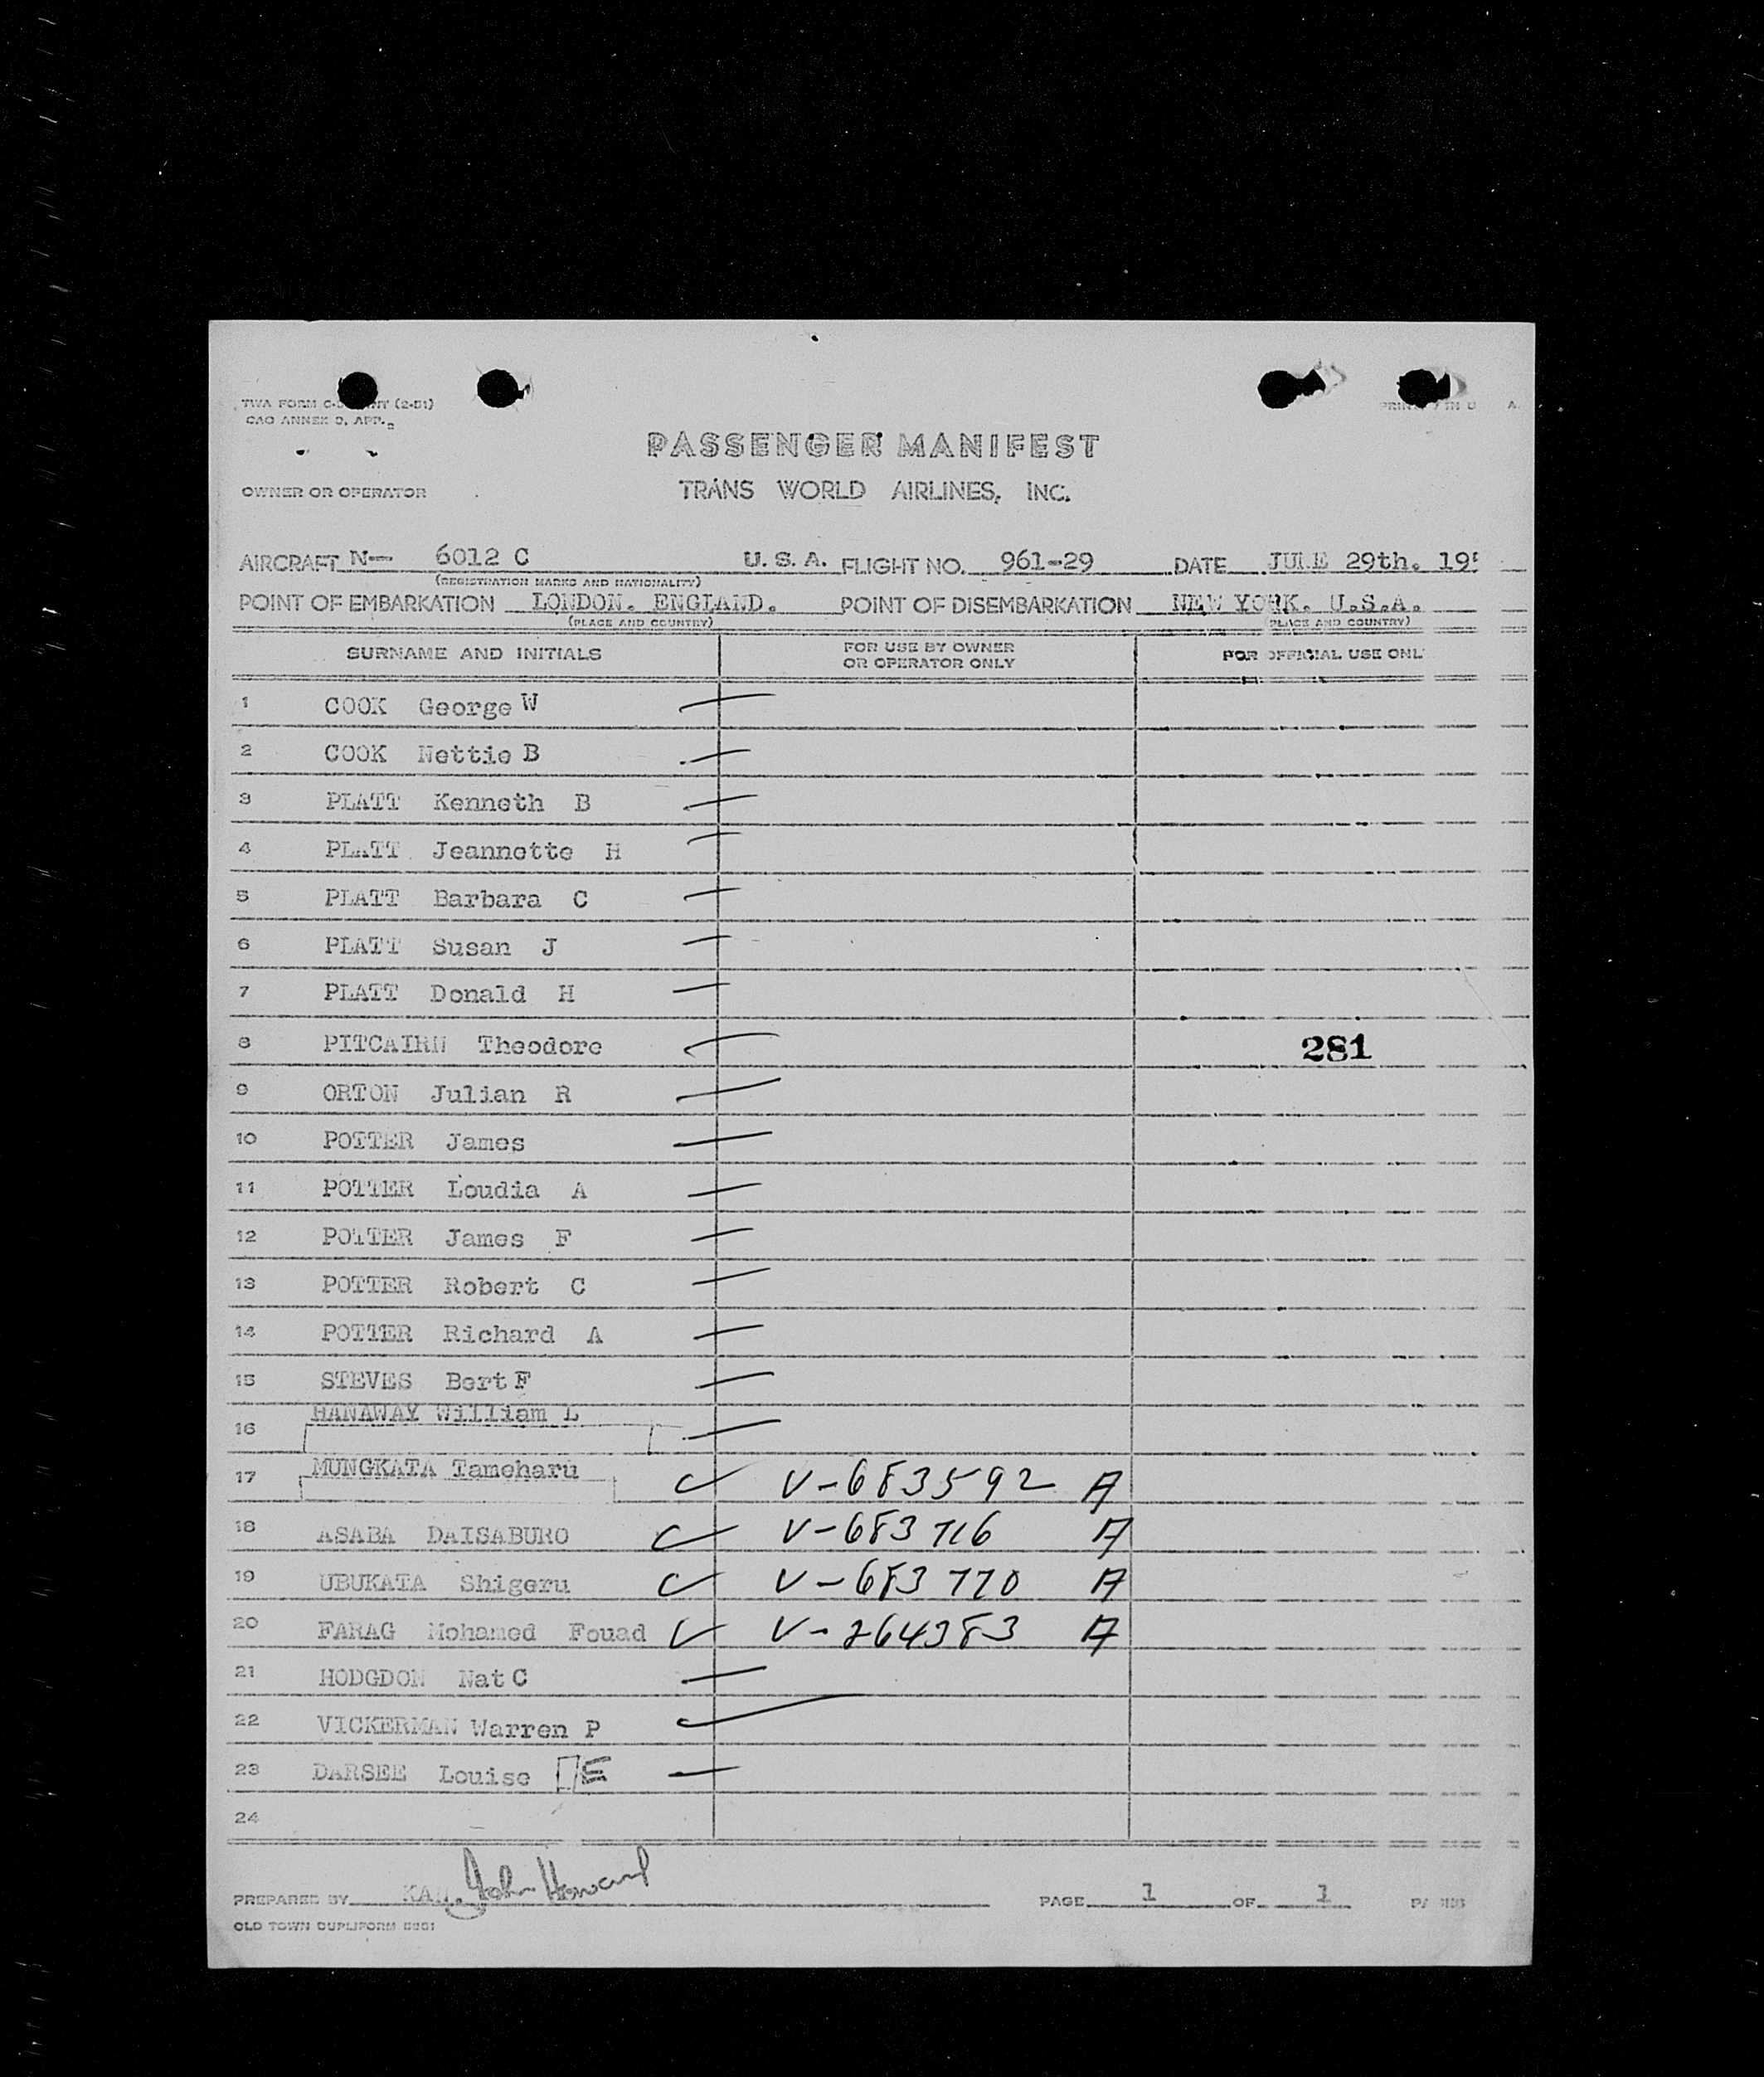 TWA FORM C- (2-51)
CAO ANNEX 9, APP.
PASSENGER MANIFEST
OWNER OR OPERATOR
TRANS WORLD AIRLINES, INC.
AIRCRAFT N- 6012 C U. S. A. FLIGHT NO. 961-29 DATE 29th. 195
(REGISTRATION MARKS AND NATIONALITY)
POINT OF EMBARKATION LONDON. ENGLAND. POINT OF DISEMBARKATION NEW YORK. U.S.A.
(PLACE AND COUNTRY) (PLACE AND COUNTRY)
SURNAME AND INITIALS FOR USE BY OWNER OR OPERATOR ONLY FOR OFFICIAL USE ONL
1 COOK George W
2 COOK Nettie B
3 PLATT Kenneth B
4 PLATT Jeannette H
5 PLATT Barbara C
6 PLATT Susan J
7 PLATT Donald H
8 PITCAIRN Theodore 281
9 ORTON Julian R
10 POTTER James
11 POTTER Loudia A
12 POTTER James F
13 POTTER Robert C
14 POTTER Richard A
15 STEVES Bert F
16 HANAWAY William L
17 MUNGKATA Tameharu V-683592 A
18 ASABA DAISABURO V-683716 A
19 UBUKATA Shigeru V-683770 A
20 FARAG Mohamed Fouad V-264383 A
21 HODGDON Nat C
22 VICKERMAN Warren P
23 DARSEE Louise E
24
PREPARED BY John Howard PAGE 1 OF 1
OLD TOWN DUPLIFORM